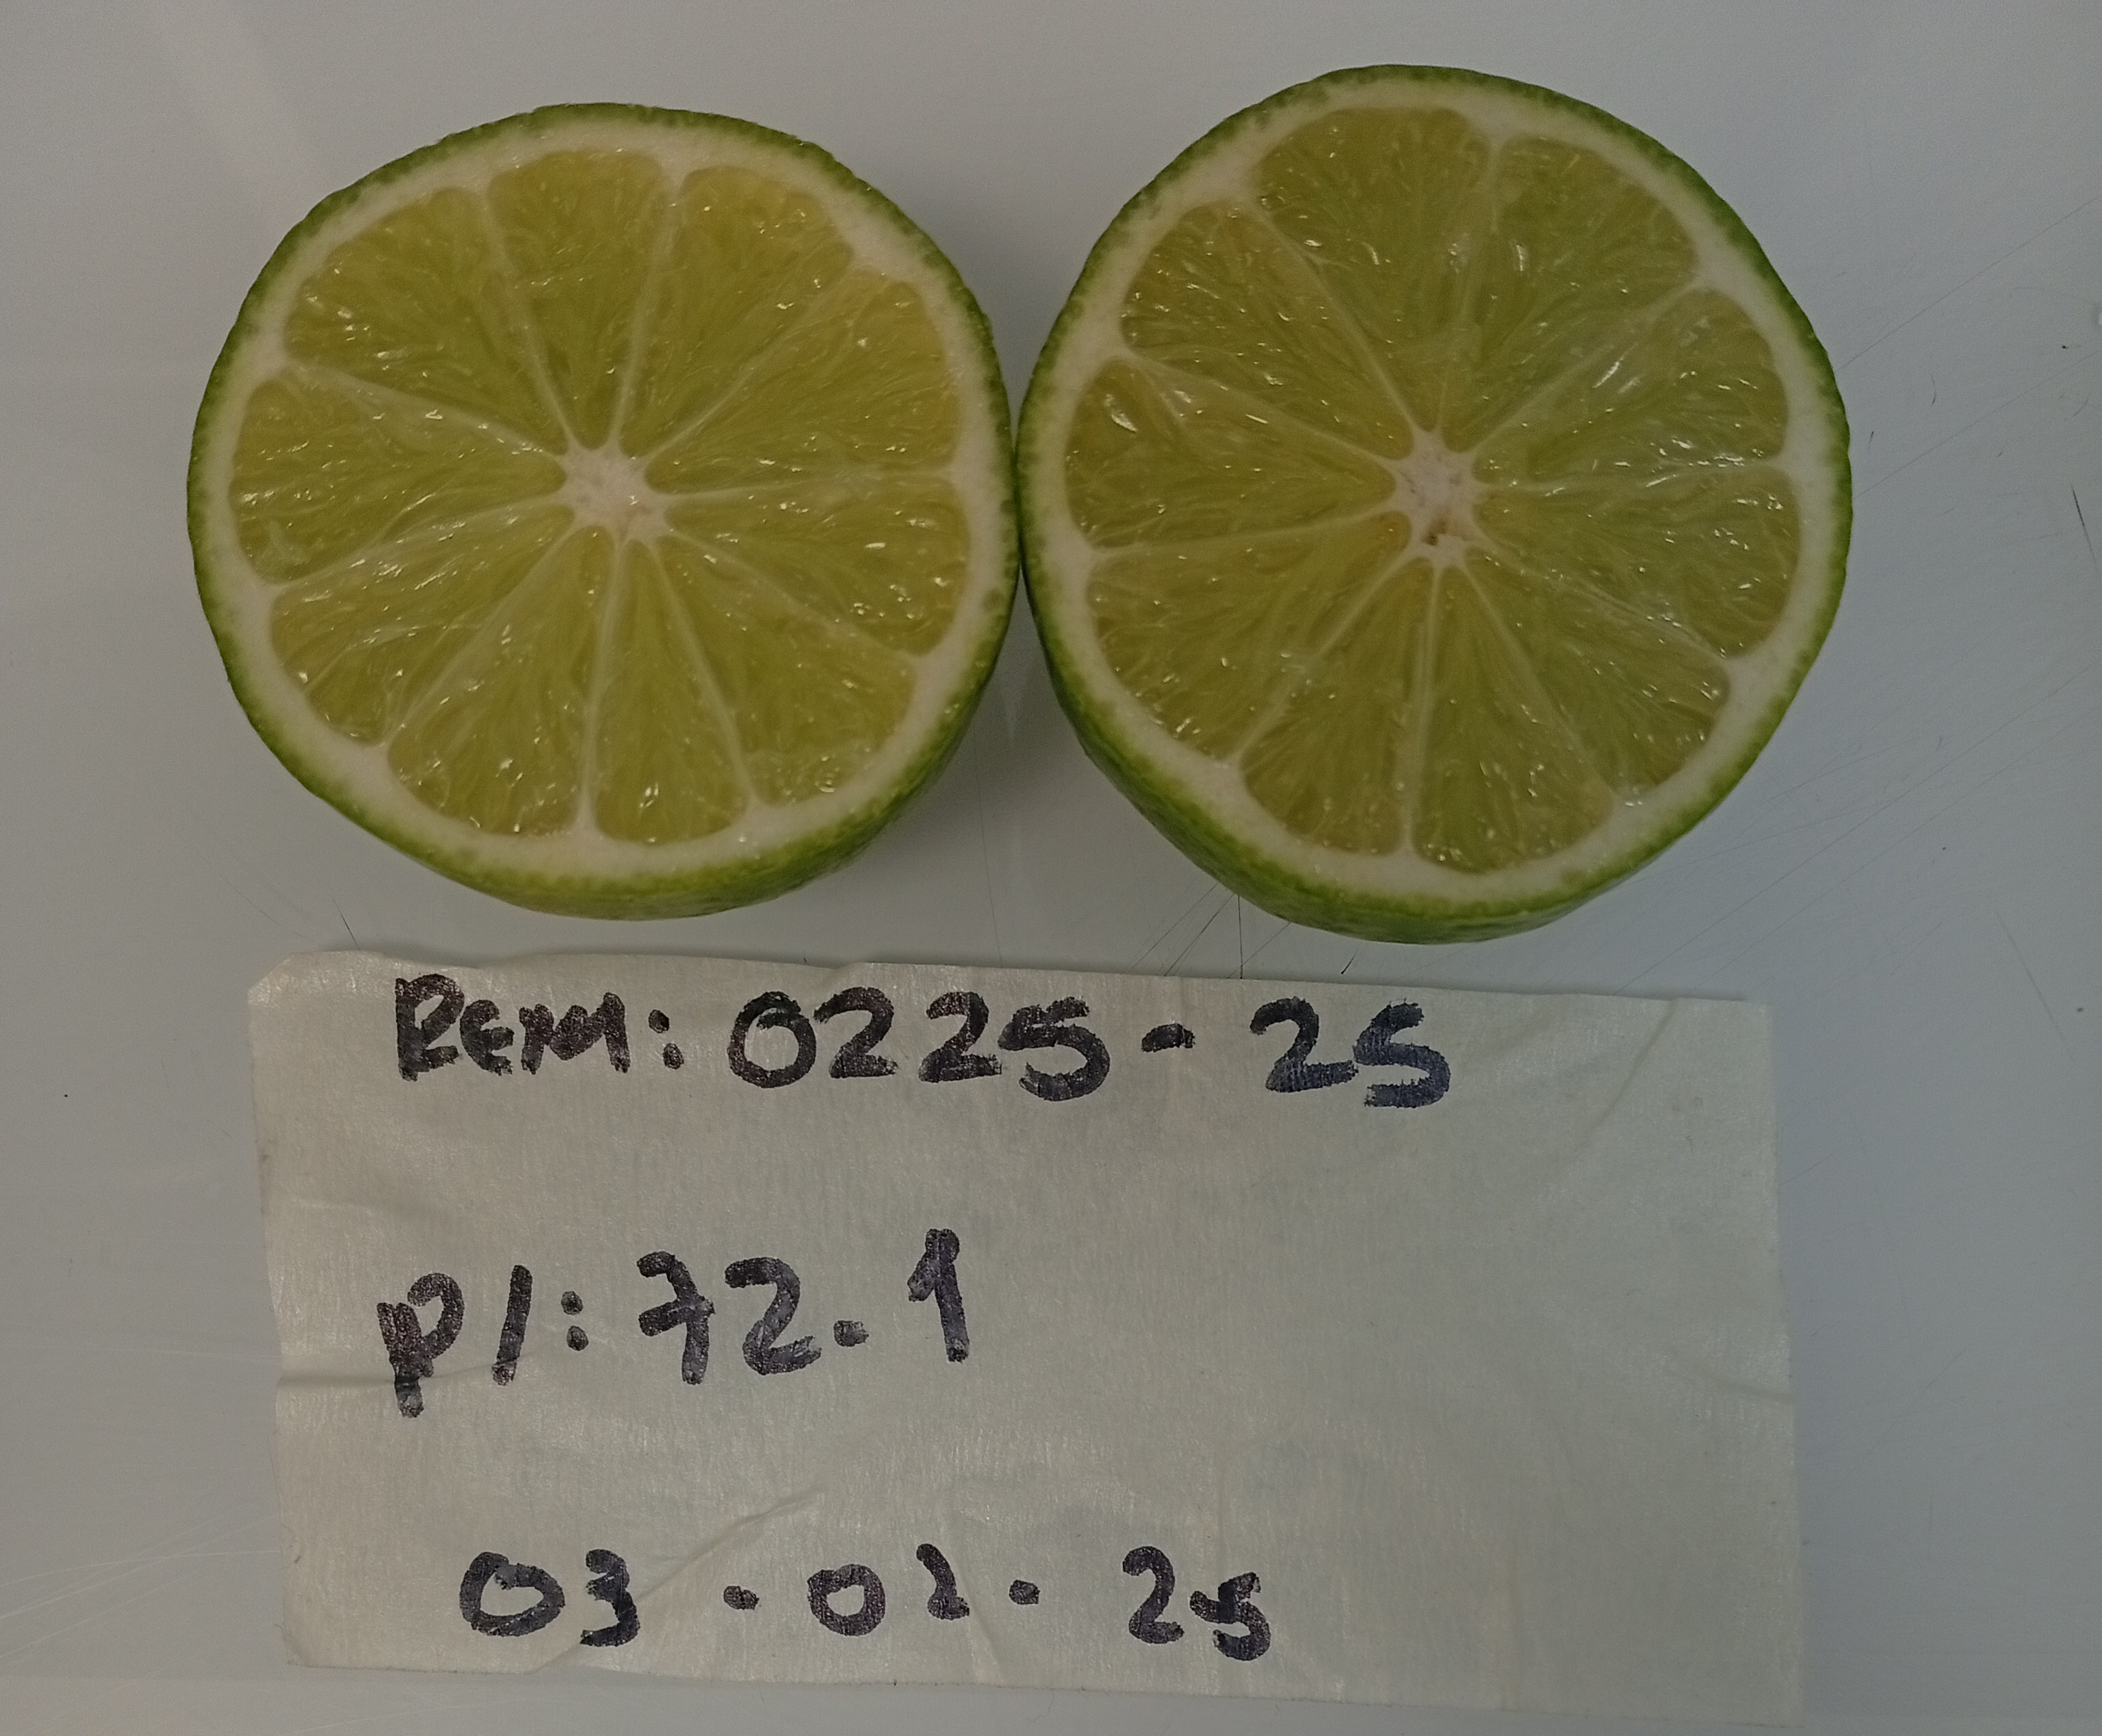 REM: 0225-25
P/: 72.1
03.02.25